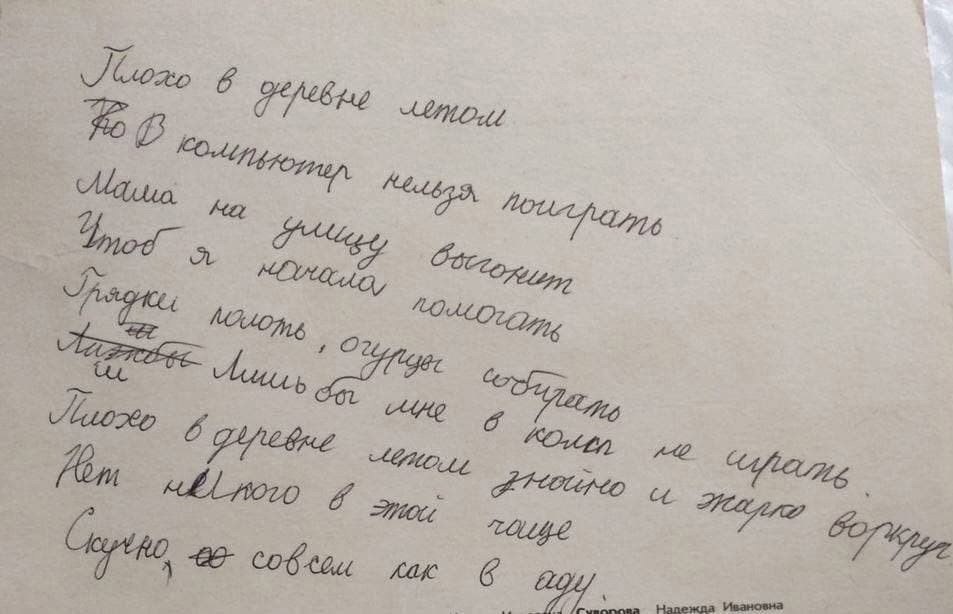 Плохо в деревне летом
В компьютер нельзя поиграть
Мама на улицу выгонит
Чтоб я начала помогать
Грядки полоть, огурцы собирать
Лишь бы мне в комп не играть.
Плохо в деревне летом знойно и жарко воркруг
Нет никого в этой чаще
Скучно, совсем как в аду.
Суворова Надежда Ивановна